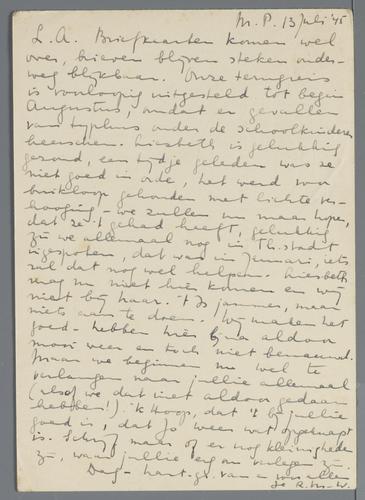 M.P. 13 Juli '45
L.A. Briefkaarten komen wel
over, brieven blijven steken onder-
weg blijkbaar. Onze terugreis
is voorloopig uitgesteld tot begin
Augustus, omdat er gevallen
van typhus onder de schoolkinderen
heerschen. Liesbeth is gelukkig
gezond, een tijdje geleden was ze
niet goed in orde, het werd voor
buikloop gehouden met lichte ver-
hooging - we zullen nu maar hopen,
dat ze 't gehad heeft, gelukkig
zijn we allemaal nog in Th.stadt
ingespoten, dat was in Januari, iets
zal dat nog wel helpen. Liesbeth
mag nu niet hier komen en wij
niet bij haar. 't Is jammer, maar
niets aan te doen. Wij maken het
goed - hebben hier bijna aldoor
mooi weer en toch niet benauwd.
Maar we beginnen nu wel te
verlangen naar jullie allemaal
(alsof we dat niet aldoor gedaan
hebben!). 'k Hoop, dat 't bij jullie
goed is, dat Jo weer wat opgeknapt
is. Schrijf maar of er nog kleinigheden
zijn, waar jullie erg om verlegen zijn.
Dag - hart. gr. van ons allen